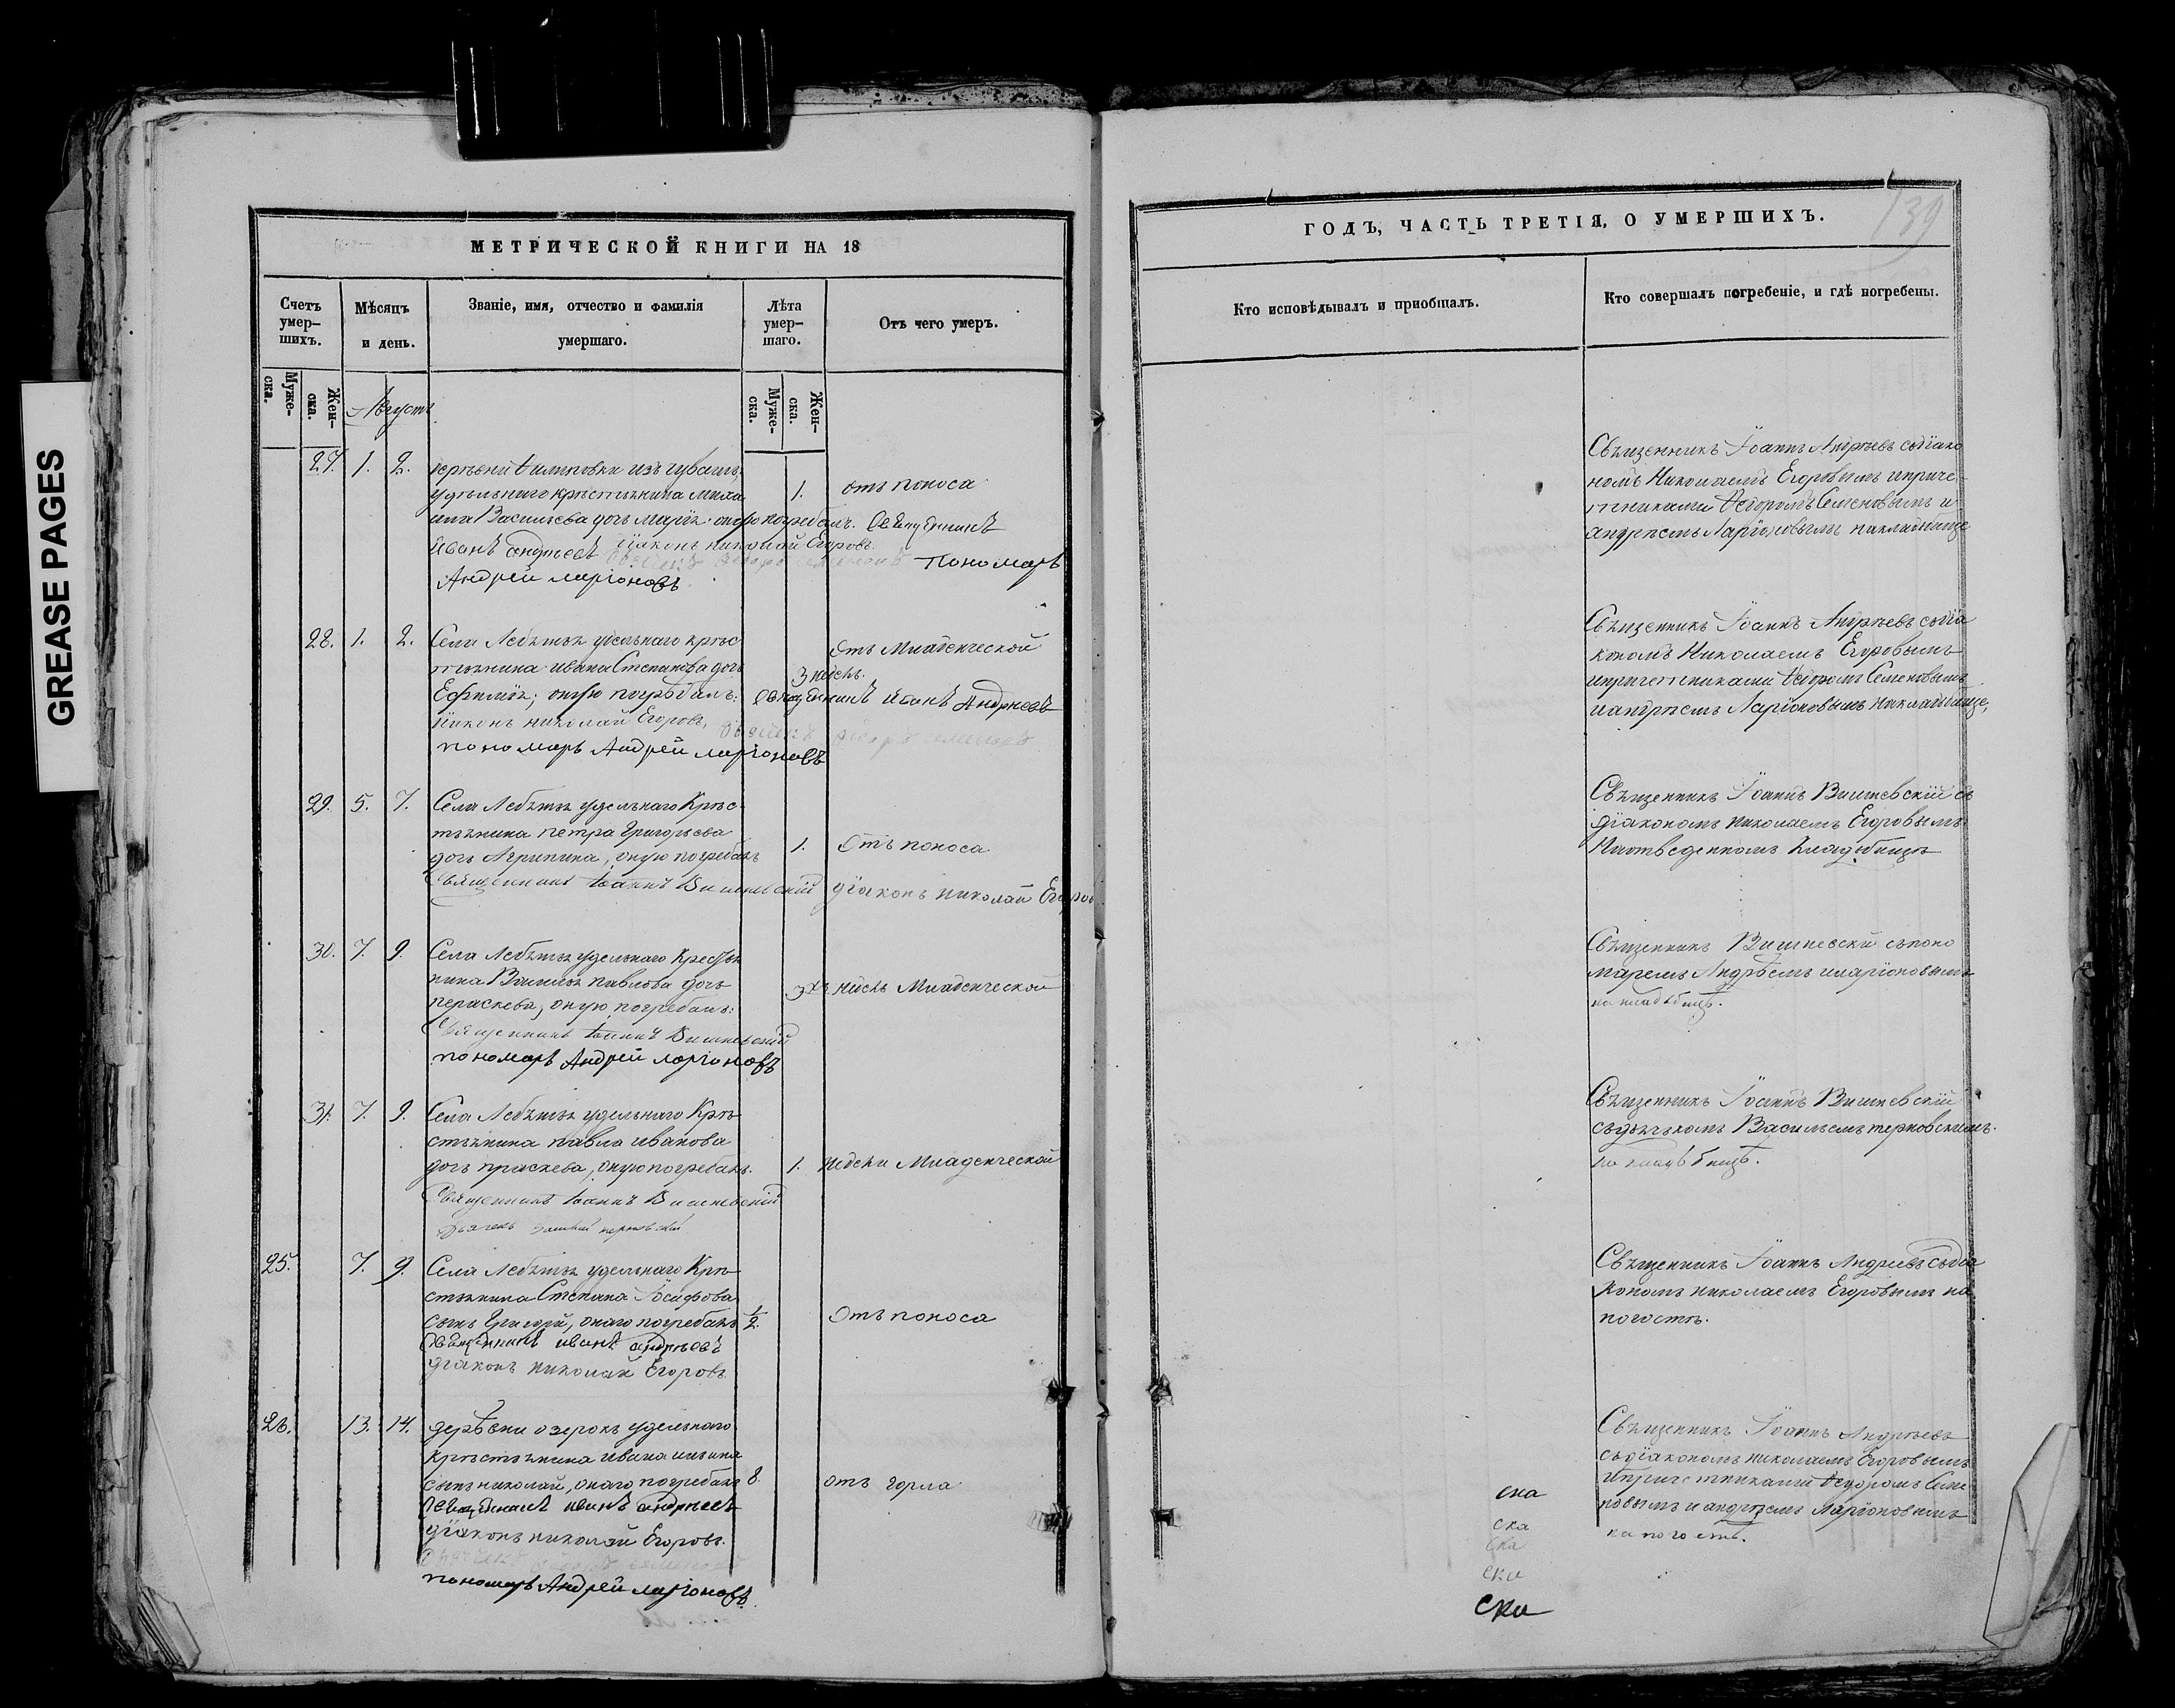 GREASE PAGES
МЕТРИЧЕСКОЙ КНИГИ НА 18
Счетъ умер-шихъ.
Мѣсяцъ и день.
Званіе, имя, отчество и фамилія умершаго.
Лѣта умер-шаго.
Отъ чего умеръ.
Муже-ска.
Жен-ска.
Августъ
Муже-ска.
Жен-ска.
27. 1. 2. деревни Филиповки изъ чувашъ,
удѣльнаго крестьянина Миха 1. отъ поноса
ила Васильева дочь Марія. оную погребалъ. Священникъ
Иванъ Андреевъ діаконъ николай Егоровъ.
Пономарь
Андрей ларіоновъ.
28. 1. 2. Села Лебяжья удельнаго крес
тьянина Ивана Степанова дочь 3 недѣль. Отъ Младенческой
Ефимія; оную погребалъ: Священникъ Иванъ Андреевъ
діаконъ николай Егоровъ,
пономарь Андрей ларіоновъ
29. 5. 7. Села Лебяжья удельнаго Крес
тьянина петра Григорьева
дочь Агрипина, оную погребалъ 1. Отъ поноса
Священникъ Іоаннъ Вишневскій діаконъ николай Егоров
30. 7. 9. Села Лебяжья удельнаго Крестья
нина Василья павлова дочь
пераскева, оную погребалъ: 3хъ недѣль Младенческой
Священникъ Іоаннъ Вишневскій
пономарь Андрей ларіоновъ
31. 7. 9. Села Лебяжья удельнаго Кре
стьянина павла иванова
дочь праскева, оную погребалъ. 1. недѣли Младенческой
Священникъ Іоаннъ Вишневскій
Дьячекъ
25. 7. 9. Села Лебяжья удельнаго Кре
стьянина Степана Іосифова
сынъ Григорій, онаго погребалъ 1/2. Отъ поноса
Священникъ иванъ андреевъ
діаконъ николай Егоровъ
26. 13. 14. деревни озерокъ удельнаго
крестьянина ивана ильина
сынъ николай, онаго погребалъ 8. отъ горла
Священникъ иванъ андреевъ
діаконъ николай Егоровъ.
пономарь Андрей ларіоновъ.
ГОДЪ, ЧАСТЬ ТРЕТІЯ, О УМЕРШИХЪ.
139
Кто исповѣдывалъ и пріобщалъ.
Кто совершалъ погребеніе, и гдѣ погребены.
Священникъ Іоаннъ Андреевъ съ діако
номъ Николаемъ Егоровымъ и приче-
тниками Федоромъ Семеновымъ и
андреемъ Ларіоновымъ на кладбище
Священникъ Іоаннъ Андреевъ съ діа
кономъ Николаемъ Егоровымъ
и причетниками Федоромъ Семеновымъ
и андреемъ Ларіоновымъ на кладбище,
Священникъ Іоаннъ Вишневскій съ
діакономъ николаемъ Егоровымъ
На отведенномъ кладбищѣ
Священникъ Вишневскій съ поно
маремъ Андреемъ иларіоновымъ
на кладбищѣ.
Священникъ Іоаннъ Вишневскій
съ дьячькомъ Васильемъ терновскимъ.
на кладбищѣ.
Священникъ Іоаннъ Андреевъ съ діа
кономъ николаемъ Егоровымъ на
погостѣ.
Священникъ Іоаннъ Андреевъ
съ діакономъ николаемъ Егоровымъ
и причетниками Федоромъ Семе
новымъ и андреемъ Ларіоновымъ
на погостѣ.
ска
ска
ска
ска
ска